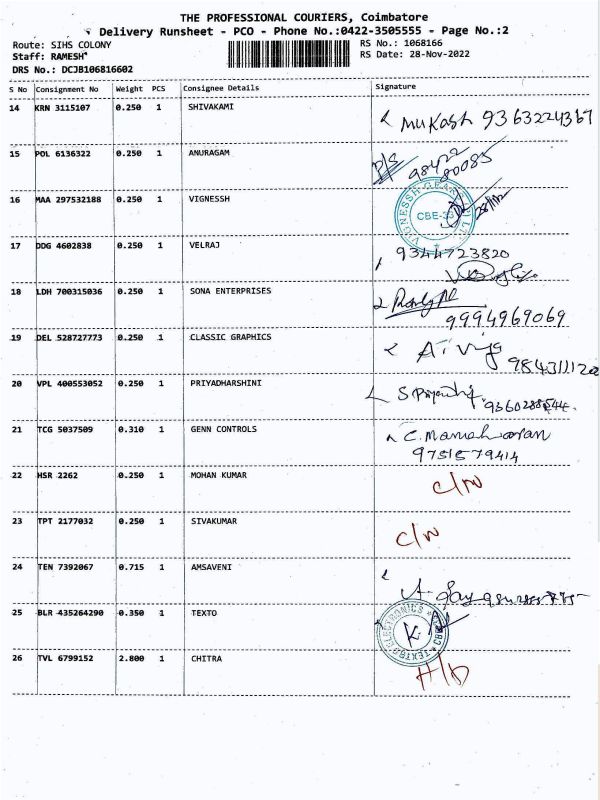 THE PROFESSIONAL COURIERS, Coimbatore
Delivery Runsheet - PCO - Phone No.:0422-3505555 - Page No.:2
Route: SIHS COLONY
RS No.: 1068166
Staff: RAMESH
RS Date: 28-Nov-2022
DRS No.: DCJB106816602
S No Consignment No Weight PCS Consignee Details Signature
14 KRN 3115107 0.250 1 SHIVAKAMI
Mukash 9363224367
15 POL 6136322 0.250 1 ANURAGAM
P/S 98422 80085
16 MAA 297532188 0.250 1 VIGNESSH
CBE-33
17 DDG 4602838 0.250 1 VELRAJ
9344723820
18 LDH 700315036 0.250 1 SONA ENTERPRISES
9994969069
19 DEL 528727773 0.250 1 CLASSIC GRAPHICS
20 VPL 400553052 0.250 1 PRIYADHARSHINI
21 TCG 5037509 0.310 1 GENN CONTROLS
9751579414
22 HSR 2262 0.250 1 MOHAN KUMAR
C/N
23 TPT 2177032 0.250 1 SIVAKUMAR
C/N
24 TEN 7392067 0.715 1 AMSAVENI
25 BLR 435264290 0.350 1 TEXTO
ELECTRONICS
26 TVL 6799152 2.800 1 CHITRA
H/D